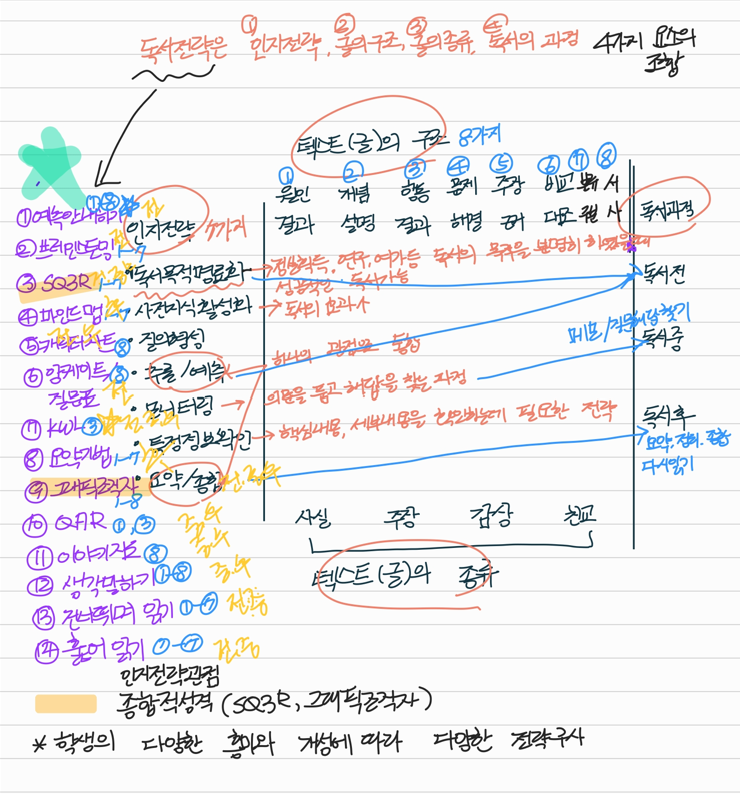 독서전략은 ① 인지전략, ② 글의구조, ③ 글의종류, ④ 독서의 과정 4가지 요소의 조합
텍스트(글)의 구조 8가지
① ② ③ ④ ⑤ ⑥ ⑦ ⑧
원인 개념 행동 문제 주장 비교 분류 서
결과 설명 결과 해결 근거 대조 사
독서과정
인지전략 7가지
① 예측안내하기 ①⑧
② 브레인스토밍 1-7
③ SQ3R
④ 마인드맵 1-7
⑤ 캐릭터차트 ⑧
⑥ 앙케이트 ⑧
질문표
⑦ KWL ③
⑧ 요약기법 1-7
⑨ 그래픽조직자 1-8
⑩ QAR ①,③
⑪ 이야기지도 ⑧
⑫ 생각말하기 ①-⑧
⑬ 건너뛰며 읽기 ①-⑦ 전중
⑭ 훑어 읽기 ①-⑦ 전중
• 독서목적명료화 → 정보획득, 연구, 여가등 독서의 목주을 분명히 하였을때
성공적인 독서가능
• 사전지식활성화 → 독서의 효과↑
• 질의형성
• 추론/예측
하나의 관점으로 통합
• 모니터링 →
의문을 품고 해답을 찾는 과정
• 특정정보확인 → 핵심내용, 세부내용을 확인하는데 필요한 전략
• 요약/종합
독서전
메모/질문해답찾기
독서중
독서후
요약, 정리, 종합
다시읽기
사실 주장 감상 친교
텍스트(글)의 종류
인지전략관점
종합적성격 (SQ3R, 그래픽조직자)
* 학생의 다양한 흥미와 개성에 따라 다양한 전략구사